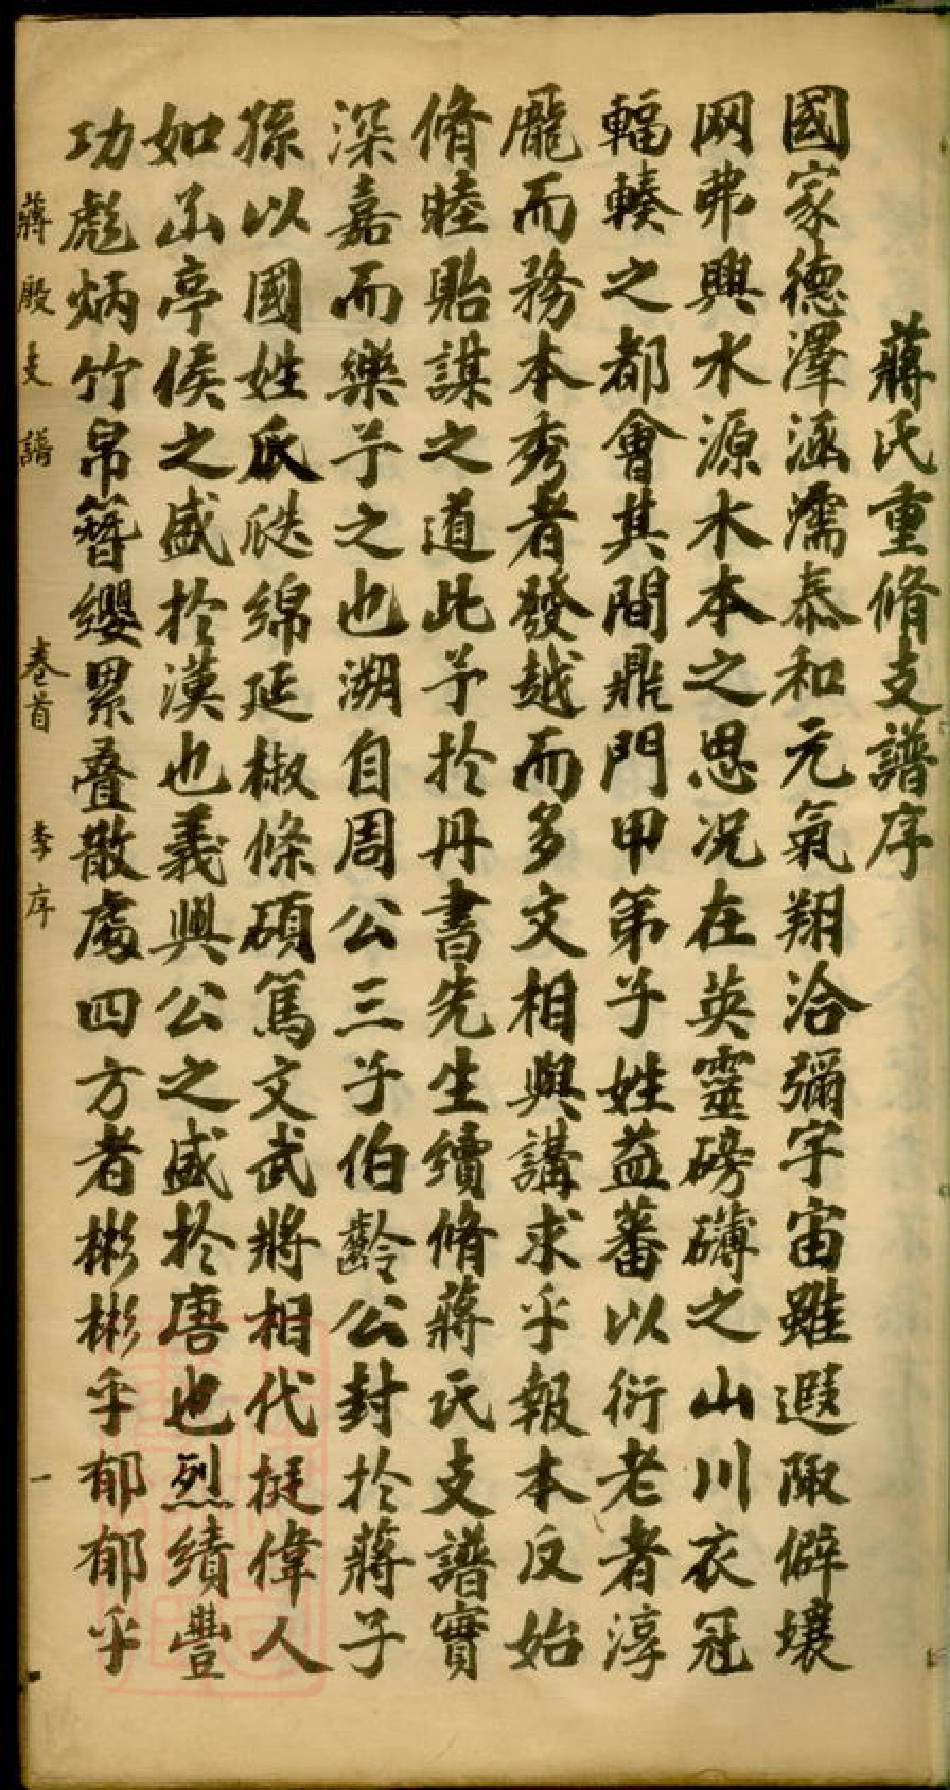 蔣氏重脩支譜序
國家德澤涵濡泰和元氣翔洽彌宇宙雖遐陬僻壤
罔弗興水源木本之思况在英靈磅礴之山川衣冠
輻輳之都會其間鼎門甲第子姓益蕃以衍老者淳
龐而務本秀者發越而多文相與講求乎報本反始
脩睦貽謀之道此予於丹書先生續脩蔣氏支譜實
深嘉而樂予之也溯自周公三子伯齡公封於蔣子
孫以國姓氏瓞綿延椒條碩篤文武將相代挺偉人
如函亭侯之盛於漢也義興公之盛於唐也烈績豐
功彪炳竹帛簪纓累叠散處四方者彬彬乎郁郁乎
蔣殿支譜 卷首 李序 一